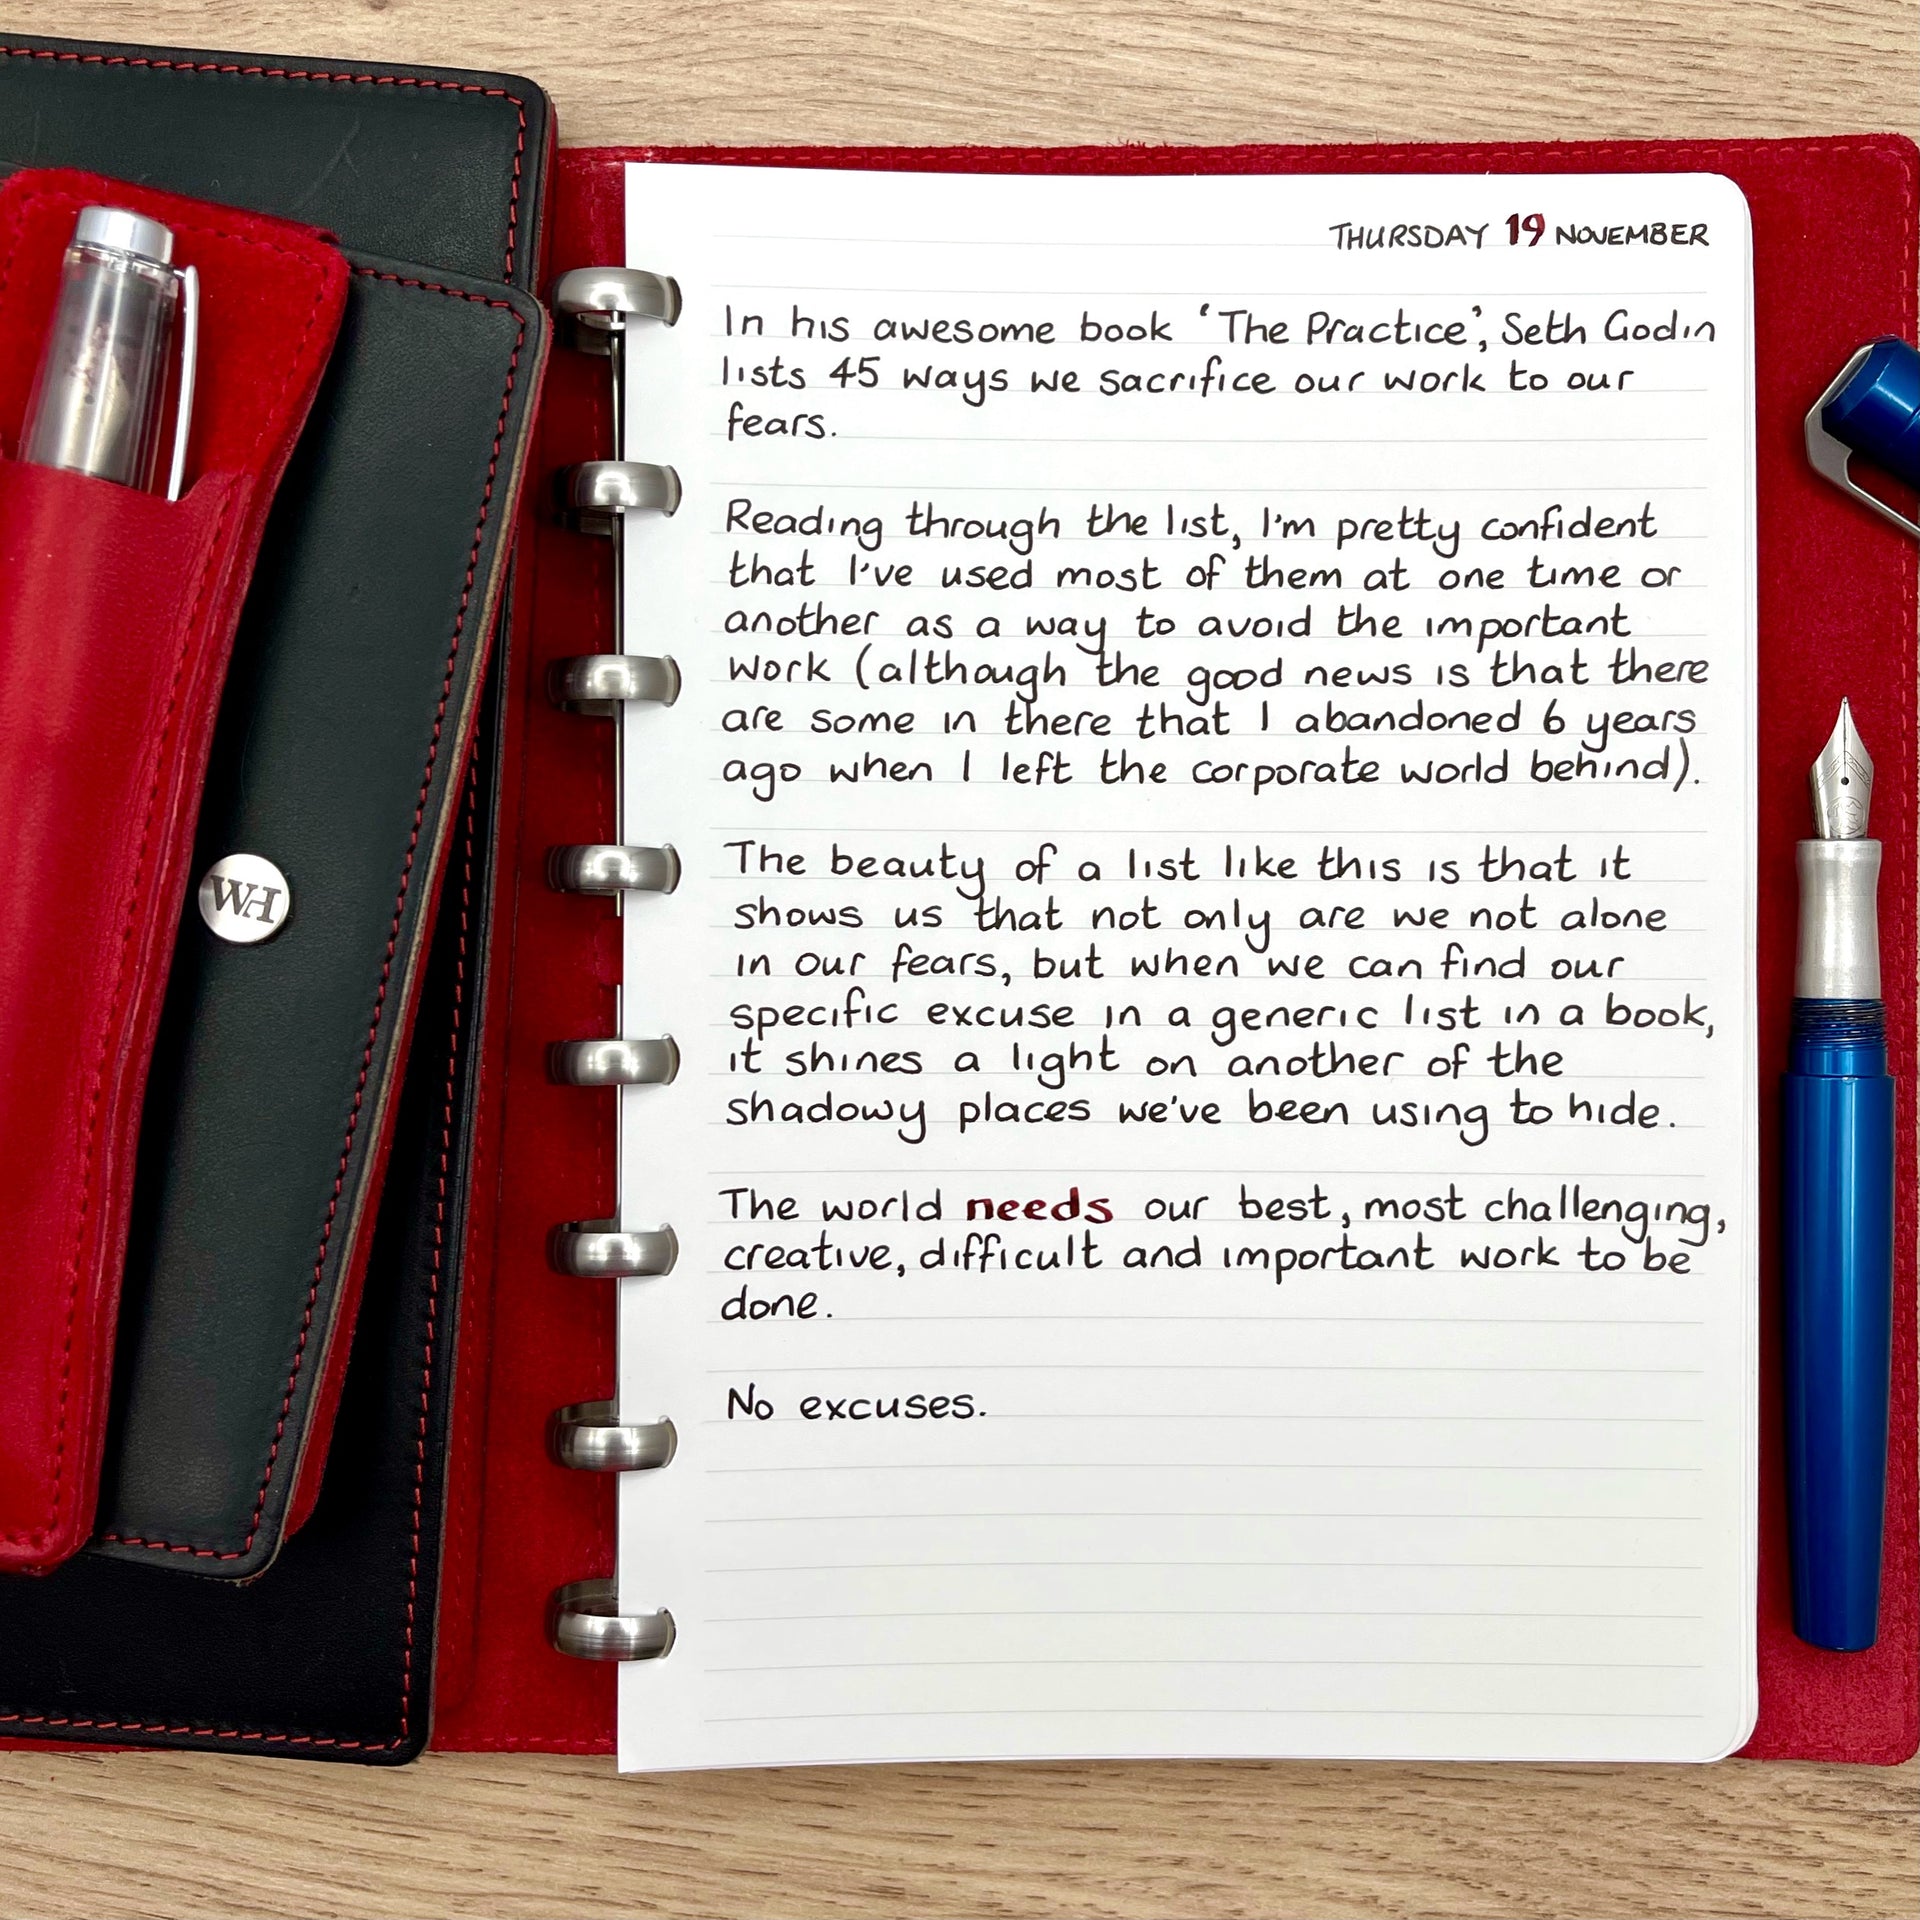 THURSDAY 19 NOVEMBER
In his awesome book 'The Practice', Seth Godin
lists 45 ways we sacrifice our work to our
fears.
Reading through the list, I'm pretty confident
that I've used most of them at one time or
another as a way to avoid the important
work (although the good news is that there
are some in there that I abandoned 6 years
ago when I left the corporate world behind).
The beauty of a list like this is that it
shows us that not only are we not alone
in our fears, but when we can find our
specific excuse in a generic list in a book,
it shines a light on another of the
shadowy places we've been using to hide.
The world needs our best, most challenging,
creative, difficult and important work to be
done.
No excuses.
WH